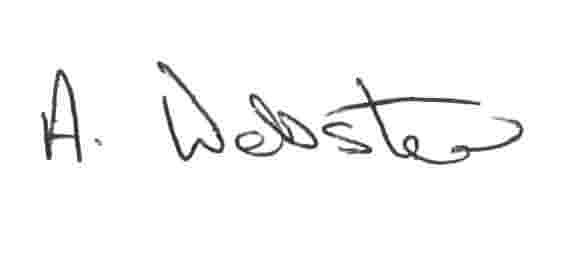 A. Webster